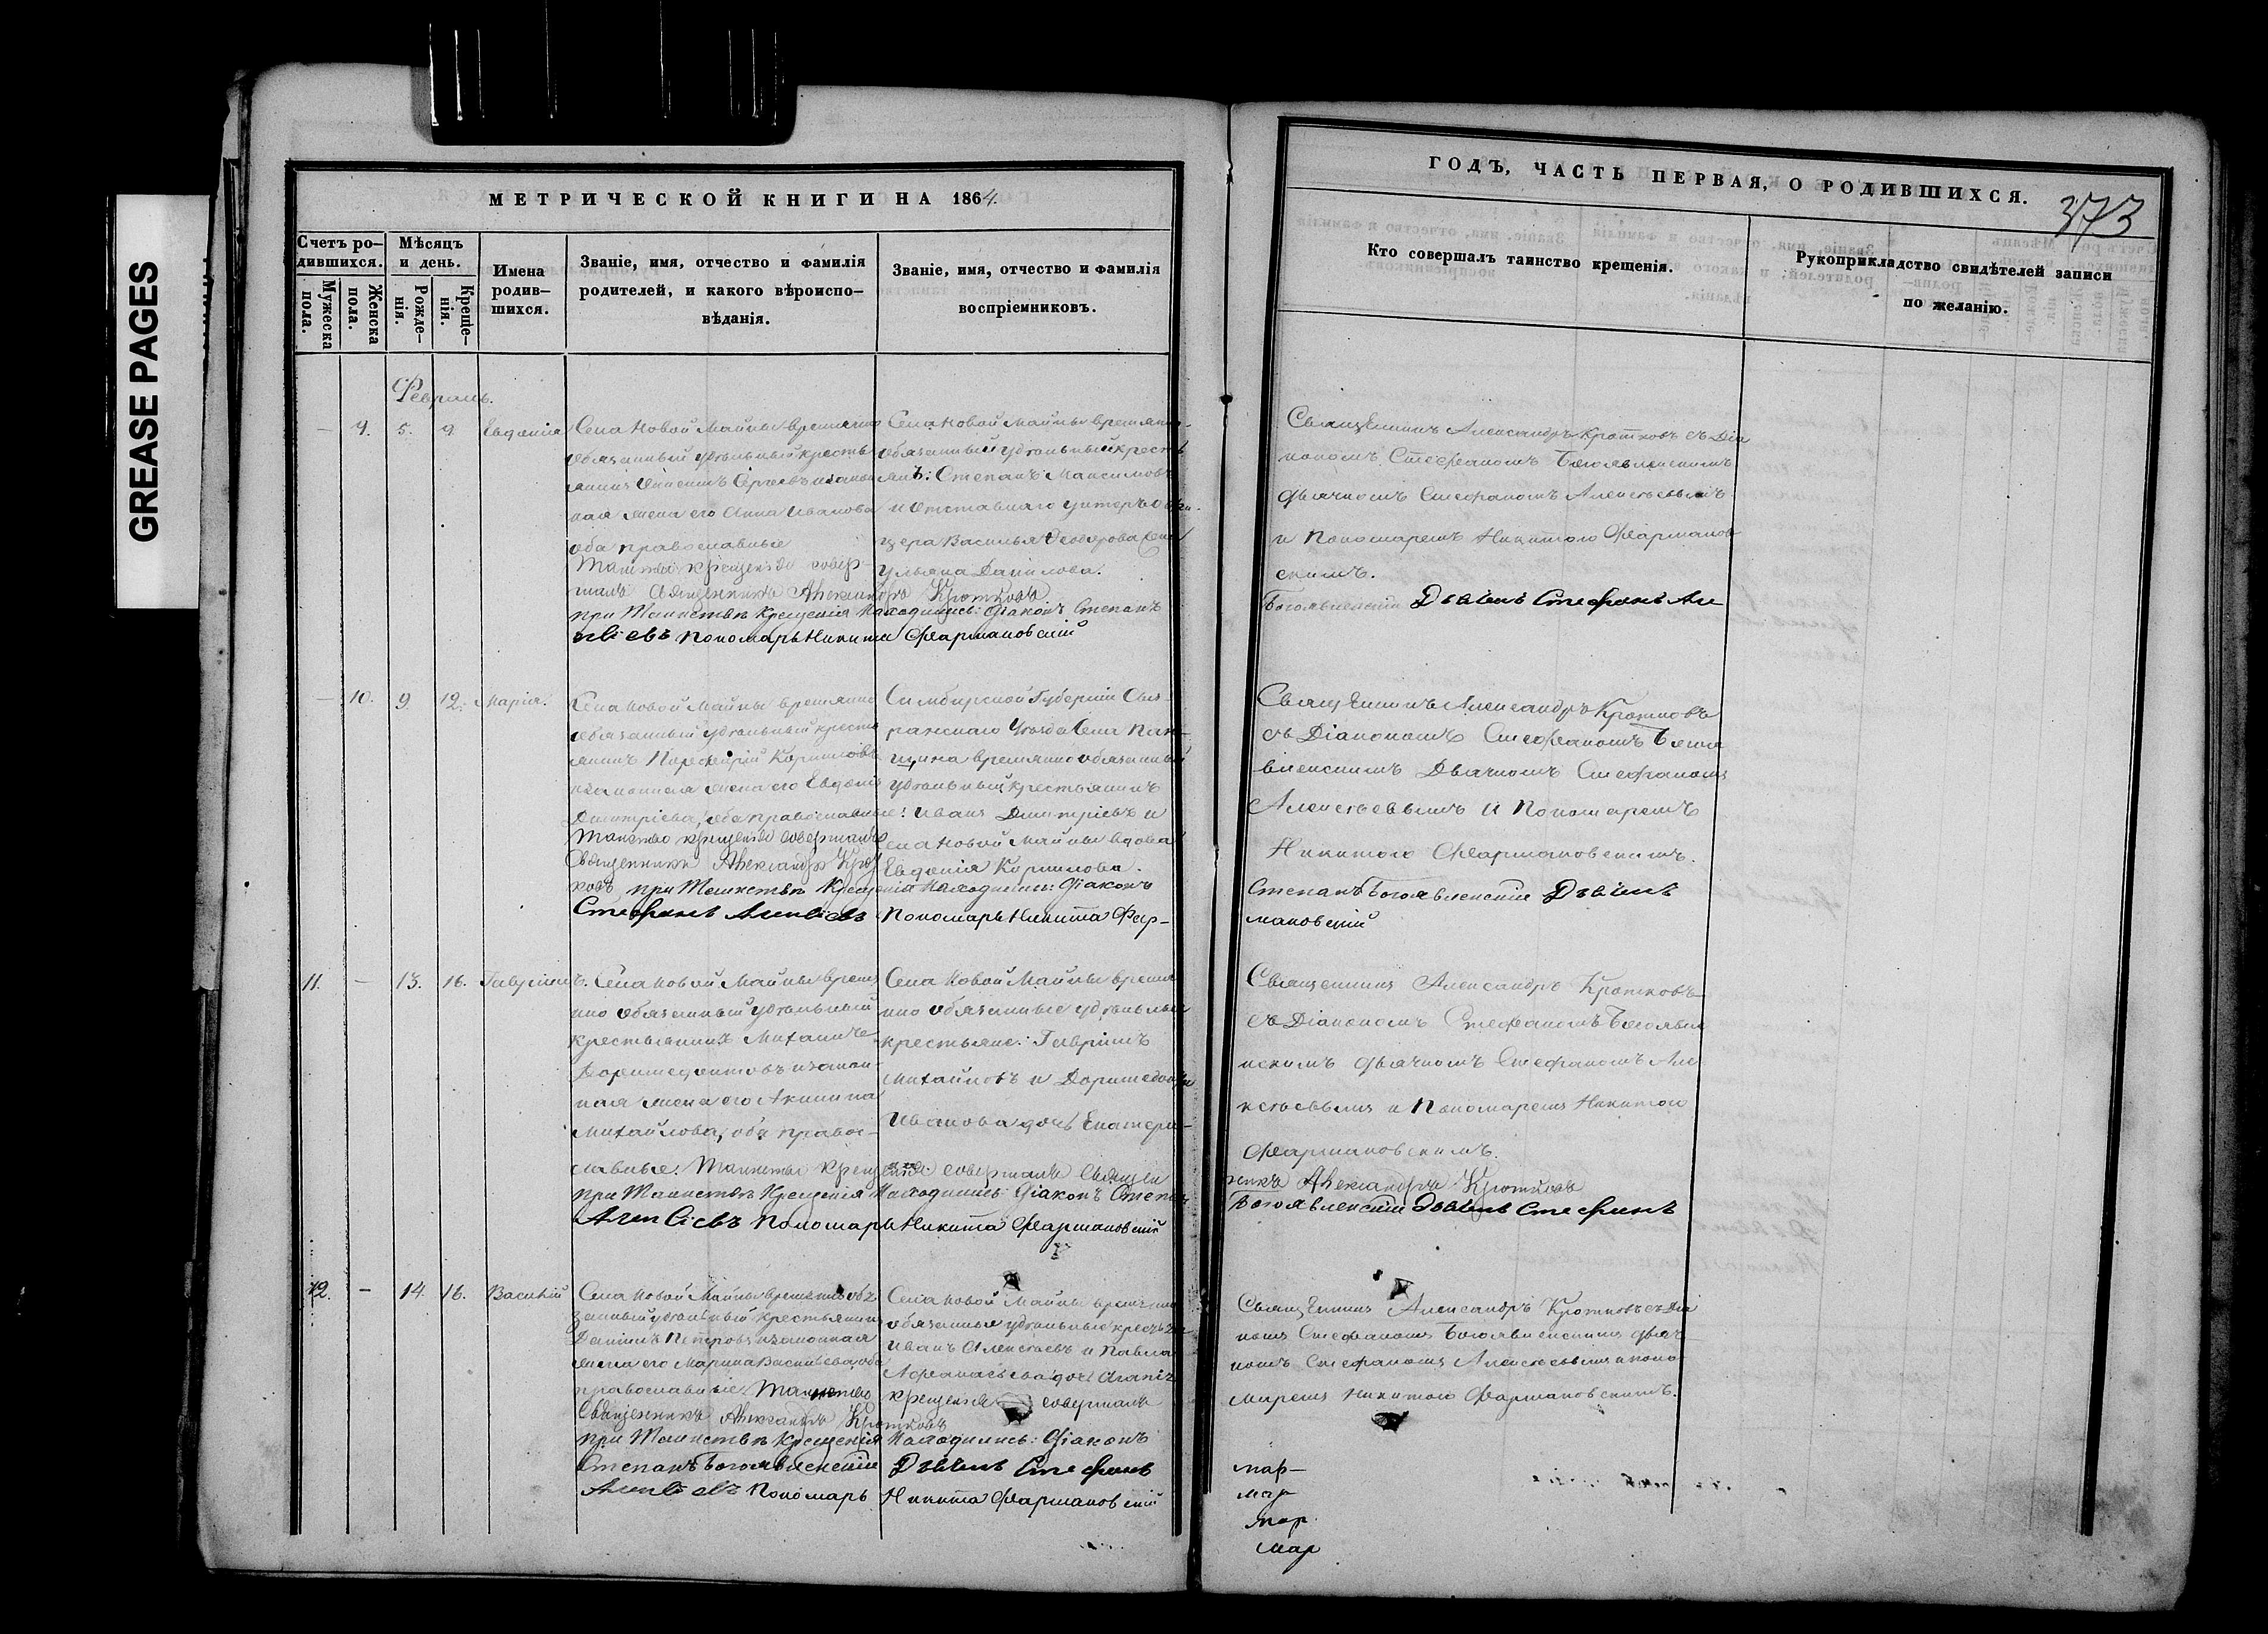 GREASE PAGES
МЕТРИЧЕСКОЙ КНИГИ НА 1864.
Счетъ ро-
дившихся.
Мужеска
пола.
Женска
пола.
Мѣсяцъ
и день.
Рожде-
нія.
Креще-
нія.
Имена
родив-
шихся.
Званіе, имя, отчество и фамилія
родителей, и какого вѣроиспо-
вѣданія.
Званіе, имя, отчество и фамилія
воспріемниковъ.
Февраль.
— 9. 5. 9. Евдокія
Села Новой Майны временно
обязанный удѣльный кресть
янинъ Сергѣевъ и закон
ная жена его Анна Иванова
оба православные
Таинство крещенія совер-
шалъ Священникъ Александръ Кротковъ
при Таинствѣ Крещенія Находились: Діаконъ Степанъ
Пономарь Никита Фармаковскій
Села Новой Майны временно-
обязанный удѣльный кресть
янъ: Степанъ Максимовъ
и Отставнаго унтеръ офи-
цера Василья Ѳеодорова
Ульяна Данилова.
— 10. 9. 12. Марія.
Села Новой Майны временно
обязанный удѣльный кресть
янинъ Порфирій Корниловъ
и законная жена его Евдокія
Димитріева, оба православные
Таинство крещенія совершалъ
Священникъ Александръ Крот
ковъ при Таинствѣ Крещенія Находились: Діаконъ
Стефанъ Алексіевъ Пономарь Никита Фар-
Симбирской Губерніи Сыз-
ранскаго Уѣзда Села Пан-
щина временно обязанный
удѣльный крестьянинъ
Иванъ Димитріевъ и
Села Новой Майны вдова
Евдокія Корнилова.
11. — 13. 16. Гавріилъ.
Села Новой Майны времен
но обязанный удѣльный
крестьянинъ Михаилъ
Доримедонтовъ и закон
ная жена его Акилина
Михайлова, оба право-
славные. Таинство Крещенія совершалъ Священ
при Таинствѣ Крещенія Находились: Діаконъ Степанъ
Алексіевъ Пономарь Никита Фармаковскій
Села Новой Майны времен
но обязанные удѣльные
крестьяне: Гавріилъ
Михайловъ и Доримедонта
Иванова дочь Екатери-
12. — 14. 16. Василій
Села Новой Майны временно обя
занный удѣльный крестьянинъ
Даніилъ Петровъ и законная
жена его Марина Васильева, оба
православные. Таинство
Священникъ Александръ Кротковъ
при Таинствѣ Крещенія Находились: Діаконъ
Степанъ Богоявленскій Дьячекъ Стефанъ
Алексіевъ Пономарь Никита Фармаковскій
Села Новой Майны временно
обязанные удѣльные
Иванъ Алексѣевъ и Павла
Аѳанасьева дочь
Крещенія совершалъ
ГОДЪ, ЧАСТЬ ПЕРВАЯ, О РОДИВШИХСЯ.
373
Кто совершалъ таинство крещенія.
Рукоприкладство свидѣтелей записи
по желанію.
Священникъ Александръ Кротковъ съ Діа
кономъ Стефаномъ Богоявленскимъ
дьячкомъ Стефаномъ Алексѣевымъ
и Пономаремъ Никитою Фармаков
скимъ.
Богоявленскій Дьячекъ Стефанъ Але
Священникъ Александръ Кротковъ
съ Діакономъ Стефаномъ Богоя
вленскимъ Дьячкомъ Стефаномъ
Алексѣевымъ и Пономаремъ
Никитою Фармаковскимъ.
Степанъ Богоявленскій Дьячекъ
маковскій
Священникъ Александръ Кротковъ
съ Діакономъ Стефаномъ Богоявле
нскимъ дьячкомъ Стефаномъ Але
ксѣевымъ и Пономаремъ Никитою
Фармаковскимъ.
никъ Александръ Кротковъ
Богоявленскій Дьячекъ Стефанъ
Священникъ Александръ Кротковъ съ Діа
кономъ Стефаномъ Богоявленскимъ дьяч-
комъ Стефаномъ Алексѣевымъ и поно
маремъ Никитою Фармаковскимъ.
мар-
мар
мар.
мар